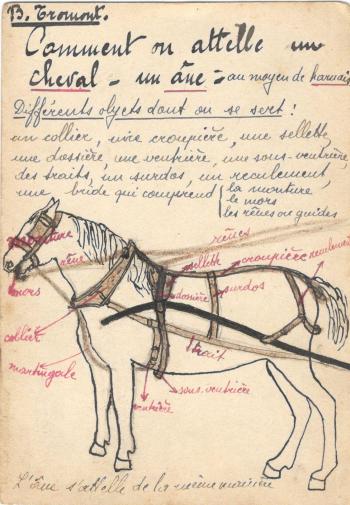 B. Tromont.
Comment on attelle un
cheval - un âne = au moyen de harnais
Différents objets dont on se sert :
un collier, une croupière, une sellette,
une dossière, une ventrière, une sous-ventrière,
des traits, un surdos, un reculement,
une bride qui comprend { la monture
le mors
les rênes ou guides
monture
rêne
rênes
sellette
croupière
reculement
mors
dossière
surdos
collier
trait
martingale
sous-ventrière
ventrière
L'âne s'attelle de la même manière